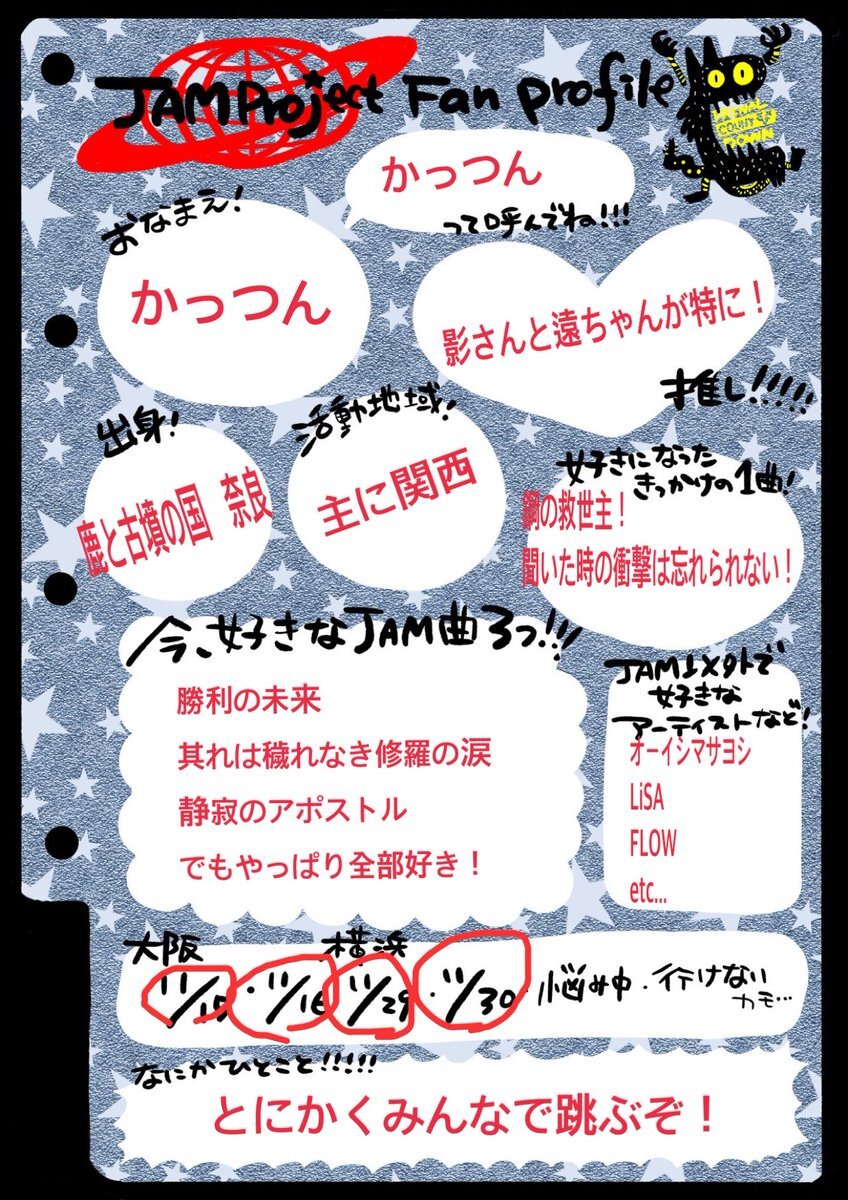 JAM Project Fan profile
かっつん
って呼んでね!!!
おなまえ!
かっつん
影さんと遠ちゃんが特に！
推し!!!!!
出身!
鹿と古墳の国 奈良
活動地域!
主に関西
好きになった
きっかけの1曲!
鋼の救世主！
聞いた時の衝撃は忘れられない！
今、好きなJAM曲3つ!!!
勝利の未来
其れは穢れなき修羅の涙
静寂のアポストル
でもやっぱり全部好き！
JAM以外で
好きな
アーティストなど!
オーイシマサヨシ
LiSA
FLOW
etc...
大阪 横浜
11/15・11/16 11/29・11/30 悩み中・行けない
カモ…
なにかひとこと!!!!!
とにかくみんなで跳ぶぞ！